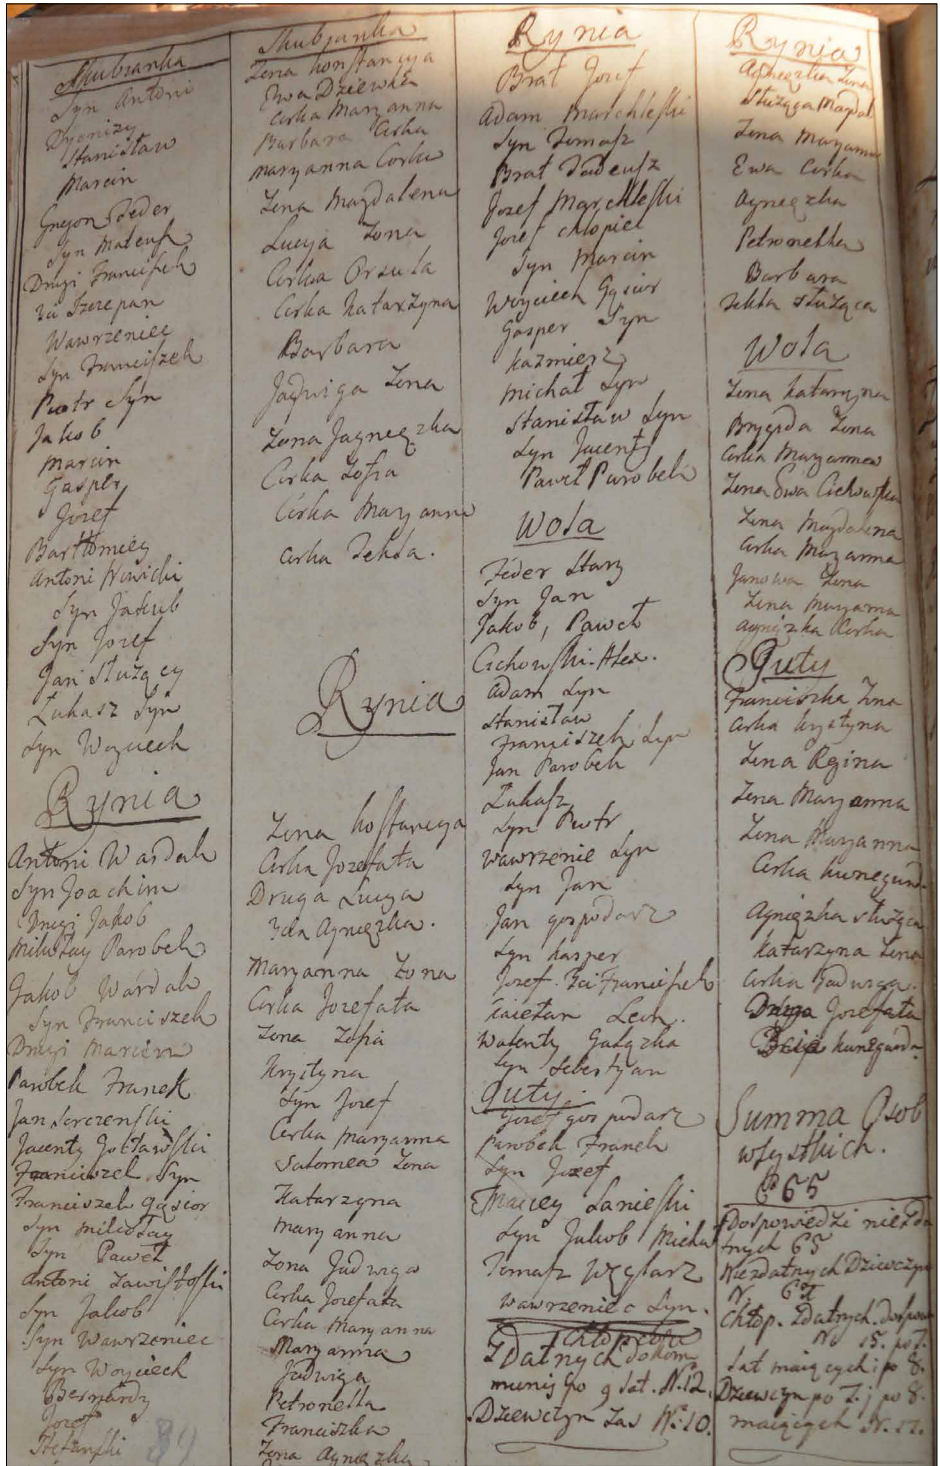 Skubianka
Syn Antoni
Dyonizy
Stanisław
Marcin
Gregon Feder
Syn Mateusz
Drugi Franciszek
3ci Szczepan
Wawrzeniec
Syn Franciszek
Piotr Syn
Jakob
Marcin
Gasper
Jozef
Bartłomiey
Antoni
Syn Jakub
Syn Jozef
Jan Służący
Łukasz Syn
Syn Woyciech
Rynia
Antoni Wardak
Syn Joachim
Drugi Jakob
Mikołay Parobek
Jakob Wardak
Syn Franciszek
Drugi Marcin
Parobek Franek
Jan
Jacenty
Franciszek Syn
Franciszek Gąsior
Syn Mikołay
Syn Paweł
Antoni
Syn Jakob
Syn Wawrzeniec
Syn Woyciech
Bernardy
Jozef
84
Skubianka
Żona Konstancyja
Ewa Dziewka
Corka Maryanna
Barbara Corka
Maryanna Corka
Żona Magdalena
Łucyja Żona
Corka Orsula
Corka Katarzyna
Barbara
Jadwiga Żona
Żona Jagneązka
Corka Zofia
Córka Maryanna
Corka Tekla.
Rynia
Żona Kostancya
Corka Jozefata
Druga Łucya
3cia Agnięzka.
Maryanna Żona
Corka Jozefata
Żona Zofia
Krystyna
Syn Jozef
Corka Maryanna
Salomea Żona
Katarzyna
Maryanna
Żona Jadwiga
Corka Jozefata
Corka Maryanna
Maryanna
Jadwiga
Petronella
Franciszka
Żona Agnięzka
Rynia
Brat Jozef
Adam Marchleski
Syn Tomasz
Brat Tadeusz
Jozef Marchleski
Jozef Chłopiec
Syn Marcin
Woyciech Gąsior
Gasper Syn
Kazmierz
Michał Syn
Stanisław Syn
Syn Jacenty
Paweł Parobek
Wola
Feder Stary
Syn Jan
Jakob, Paweł
Cichowski Alex.
Adam Syn
Stanisław
Franciszek Syn
Jan Parobek
Łukasz
Syn Piotr
Wawrzenie Syn
Syn Jan
Jan gospodarz
Syn Kasper
Jozef. 3ci Franciszek
Kaietan Leon.
Walenty Gałązka
Syn Sebestyan
Guty.
Jozef gospodarz
Parobek Franek
Syn Jozef
Maciey Sanieski
Syn Jakob Micha
Tomasz Węglarz
Wawrzeniec Syn.
Chłopców
Zdatnych dokom
munij po 9 lat. N. 12.
Dziewczyn Zas No: 10.
Rynia
Agnięzka Żona
Służąca Magdal
Żona Maryanna
Ewa Corka
Agnięzka
Petronella
Barbara
Tekla służąca
Wola
Żona Katarzyna
Brygida Żona
Corka Maryanna
Żona Ewa Cichowska
Żona Magdalena
Corka Maryanna
Janowa Żona
Żona Maryanna
Agnięzka Corka
Guty
Franciszka Żona
Corka Krystyna
Żona Regina
Żona Maryanna
Żona Maryanna
Corka Kunegund
Agnięzka służąca
Katarzyna Żona
Corka Jadwiga.
Druga Jozefata
3cia Kunegunda
Summa Osob
wszystkich.
665
Dospowiedzi niezda
tnych 65
Niezdatnych Dziewczyn
N.
Chłop. Zdatnych. dospow
No 15. po 7.
Lat maiących i po 8.
Dziewczyn po 7. j po 8.
maiących N. 12.